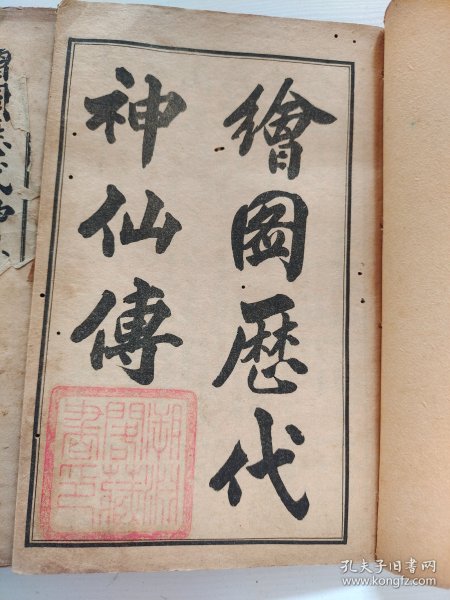 繪圖歷代
神仙傳
孔夫子旧书网
www.kongfz.com